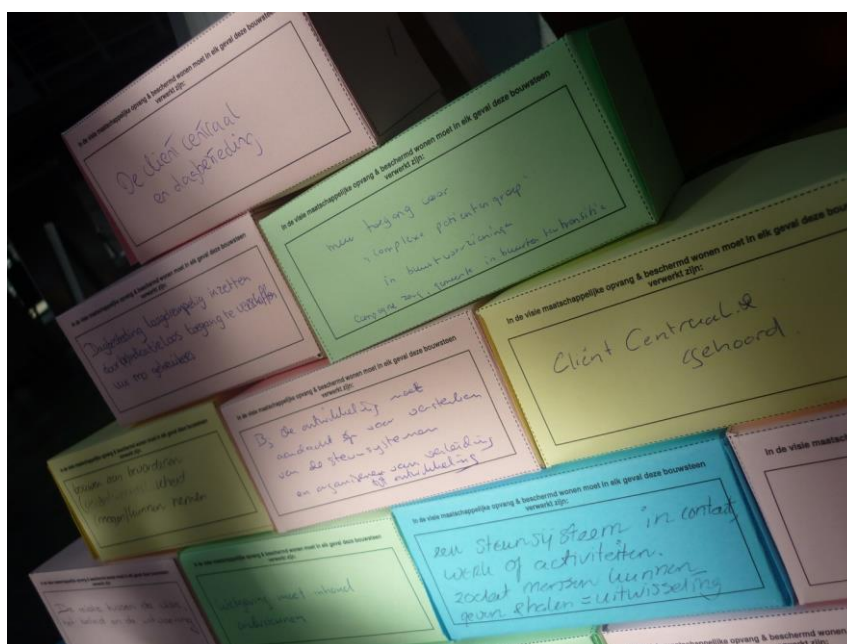 In de visie maatschappelijke opvang & beschermd wonen moet in elk geval deze bouwsteen
verwerkt zijn:
De cliënt centraal
en dagbesteding
In de visie maatschappelijke opvang & beschermd wonen moet in elk geval deze bouwsteen
verwerkt zijn:
toegang voor
"complexe patientengroep"
in buurtvoorzieningen
zorg, gemeente in buurten
In de visie maatschappelijke opvang & beschermd wonen moet in elk geval deze bouwsteen
verwerkt zijn:
Dagbesteding laagdrempelig inzetten
door toegang te
gebruikers
In de visie maatschappelijke opvang & beschermd wonen moet in elk geval deze bouw
verwerkt zijn:
Cliënt Centraal &
gehoord.
In de visie maatschappelijke opvang & beschermd wonen moet in elk geval deze bouwsteen
verwerkt zijn:
Bij de ontwikkeling moet
aandacht voor versterken
van de steunsystemen
en organiseren van verleiding
tot ontwikkeling
In de visie maatschappelijke opvang & beschermd wonen moet in elk geval deze bouwsteen
verwerkt zijn:
bevorderen
mogen/kunnen nemen
In de visie maatschappelijke opvang & beschermd wonen moet in elk geval deze bouwsteen
verwerkt zijn:
een steunsysteem in contact,
werk of activiteiten.
zodat mensen kunnen
geven & halen = uitwisseling
In de visie maa
In de visie maatschappelijke opvang & beschermd wonen moet in elk geval deze bouwsteen
verwerkt zijn:
tussen de visie,
het beleid en de uitvoering
In de visie maatschappelijke opvang & beschermd wonen moet in elk geval deze bouwsteen
verwerkt zijn:
Wetgeving moet inhoud
ondersteunen